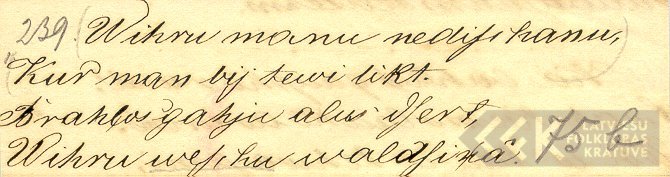 239. (Wihru manu nedischanu,
Kur man bij tewi likt.
Brahlos gahju alus dsert,
Wihru weschu waldsiņâ. 75 b
LATVIEŠU
FOLKLORAS
KRĀTUVE